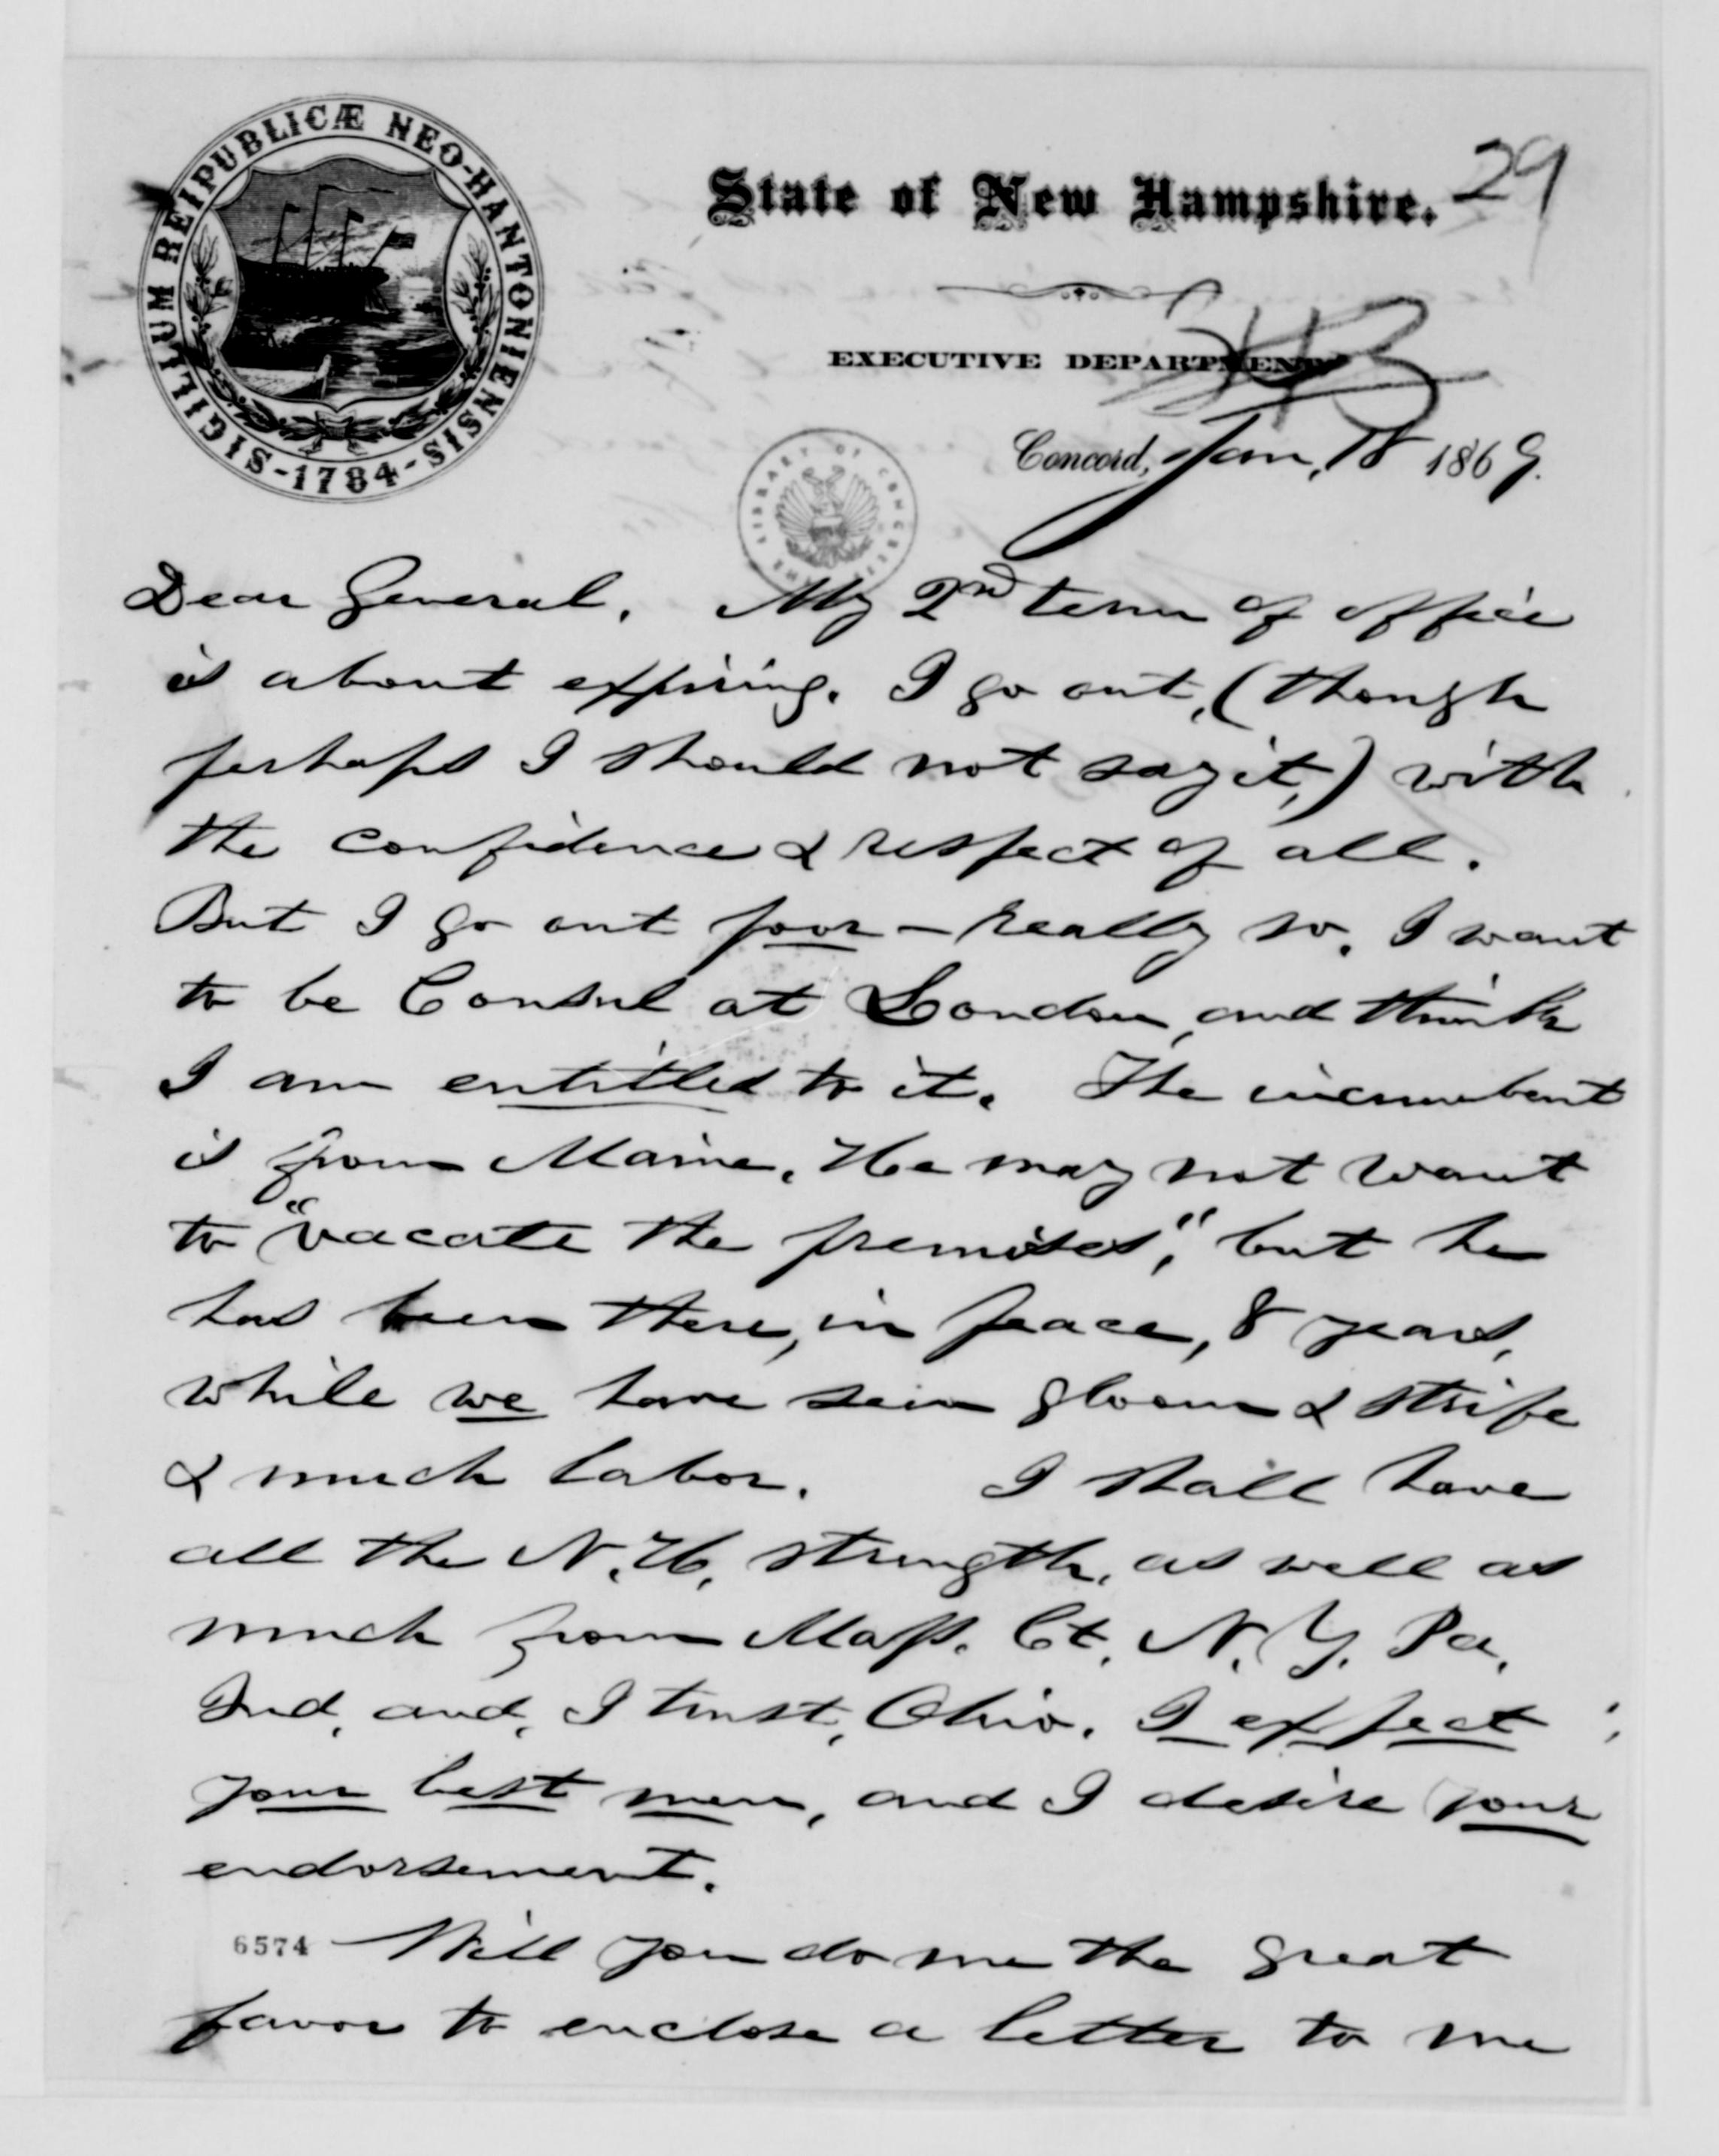 SIGILLUM REIPUBLICÆ NEO-HANTONIENSIS -1784-
State of New Hampshire.
29
EXECUTIVE DEPARTMENT
Concord, Jan. 18 1869.
THE LIBRARY OF CONGRESS
Dear General. My 2nd term of office
is about expiring. I go out, (though
perhaps I should not say it,) with
the confidence & respect of all.
But I go out poor – really so. I want
to be Consul at London, and think
I am entitled to it. The incumbent
is from Maine. He may not want
to "vacate the premises," but he
has been there, in peace, 8 years,
while we have seen gloom & strife
& much labor. I shall have
all the N.H. strength, as well as
much from Mass. Ct. N.Y. Pa.
Ind. and, I trust, Ohio. I expect
your best men, and I desire your
endorsement.
6574 Will you do me the great
favor to enclose a letter to me